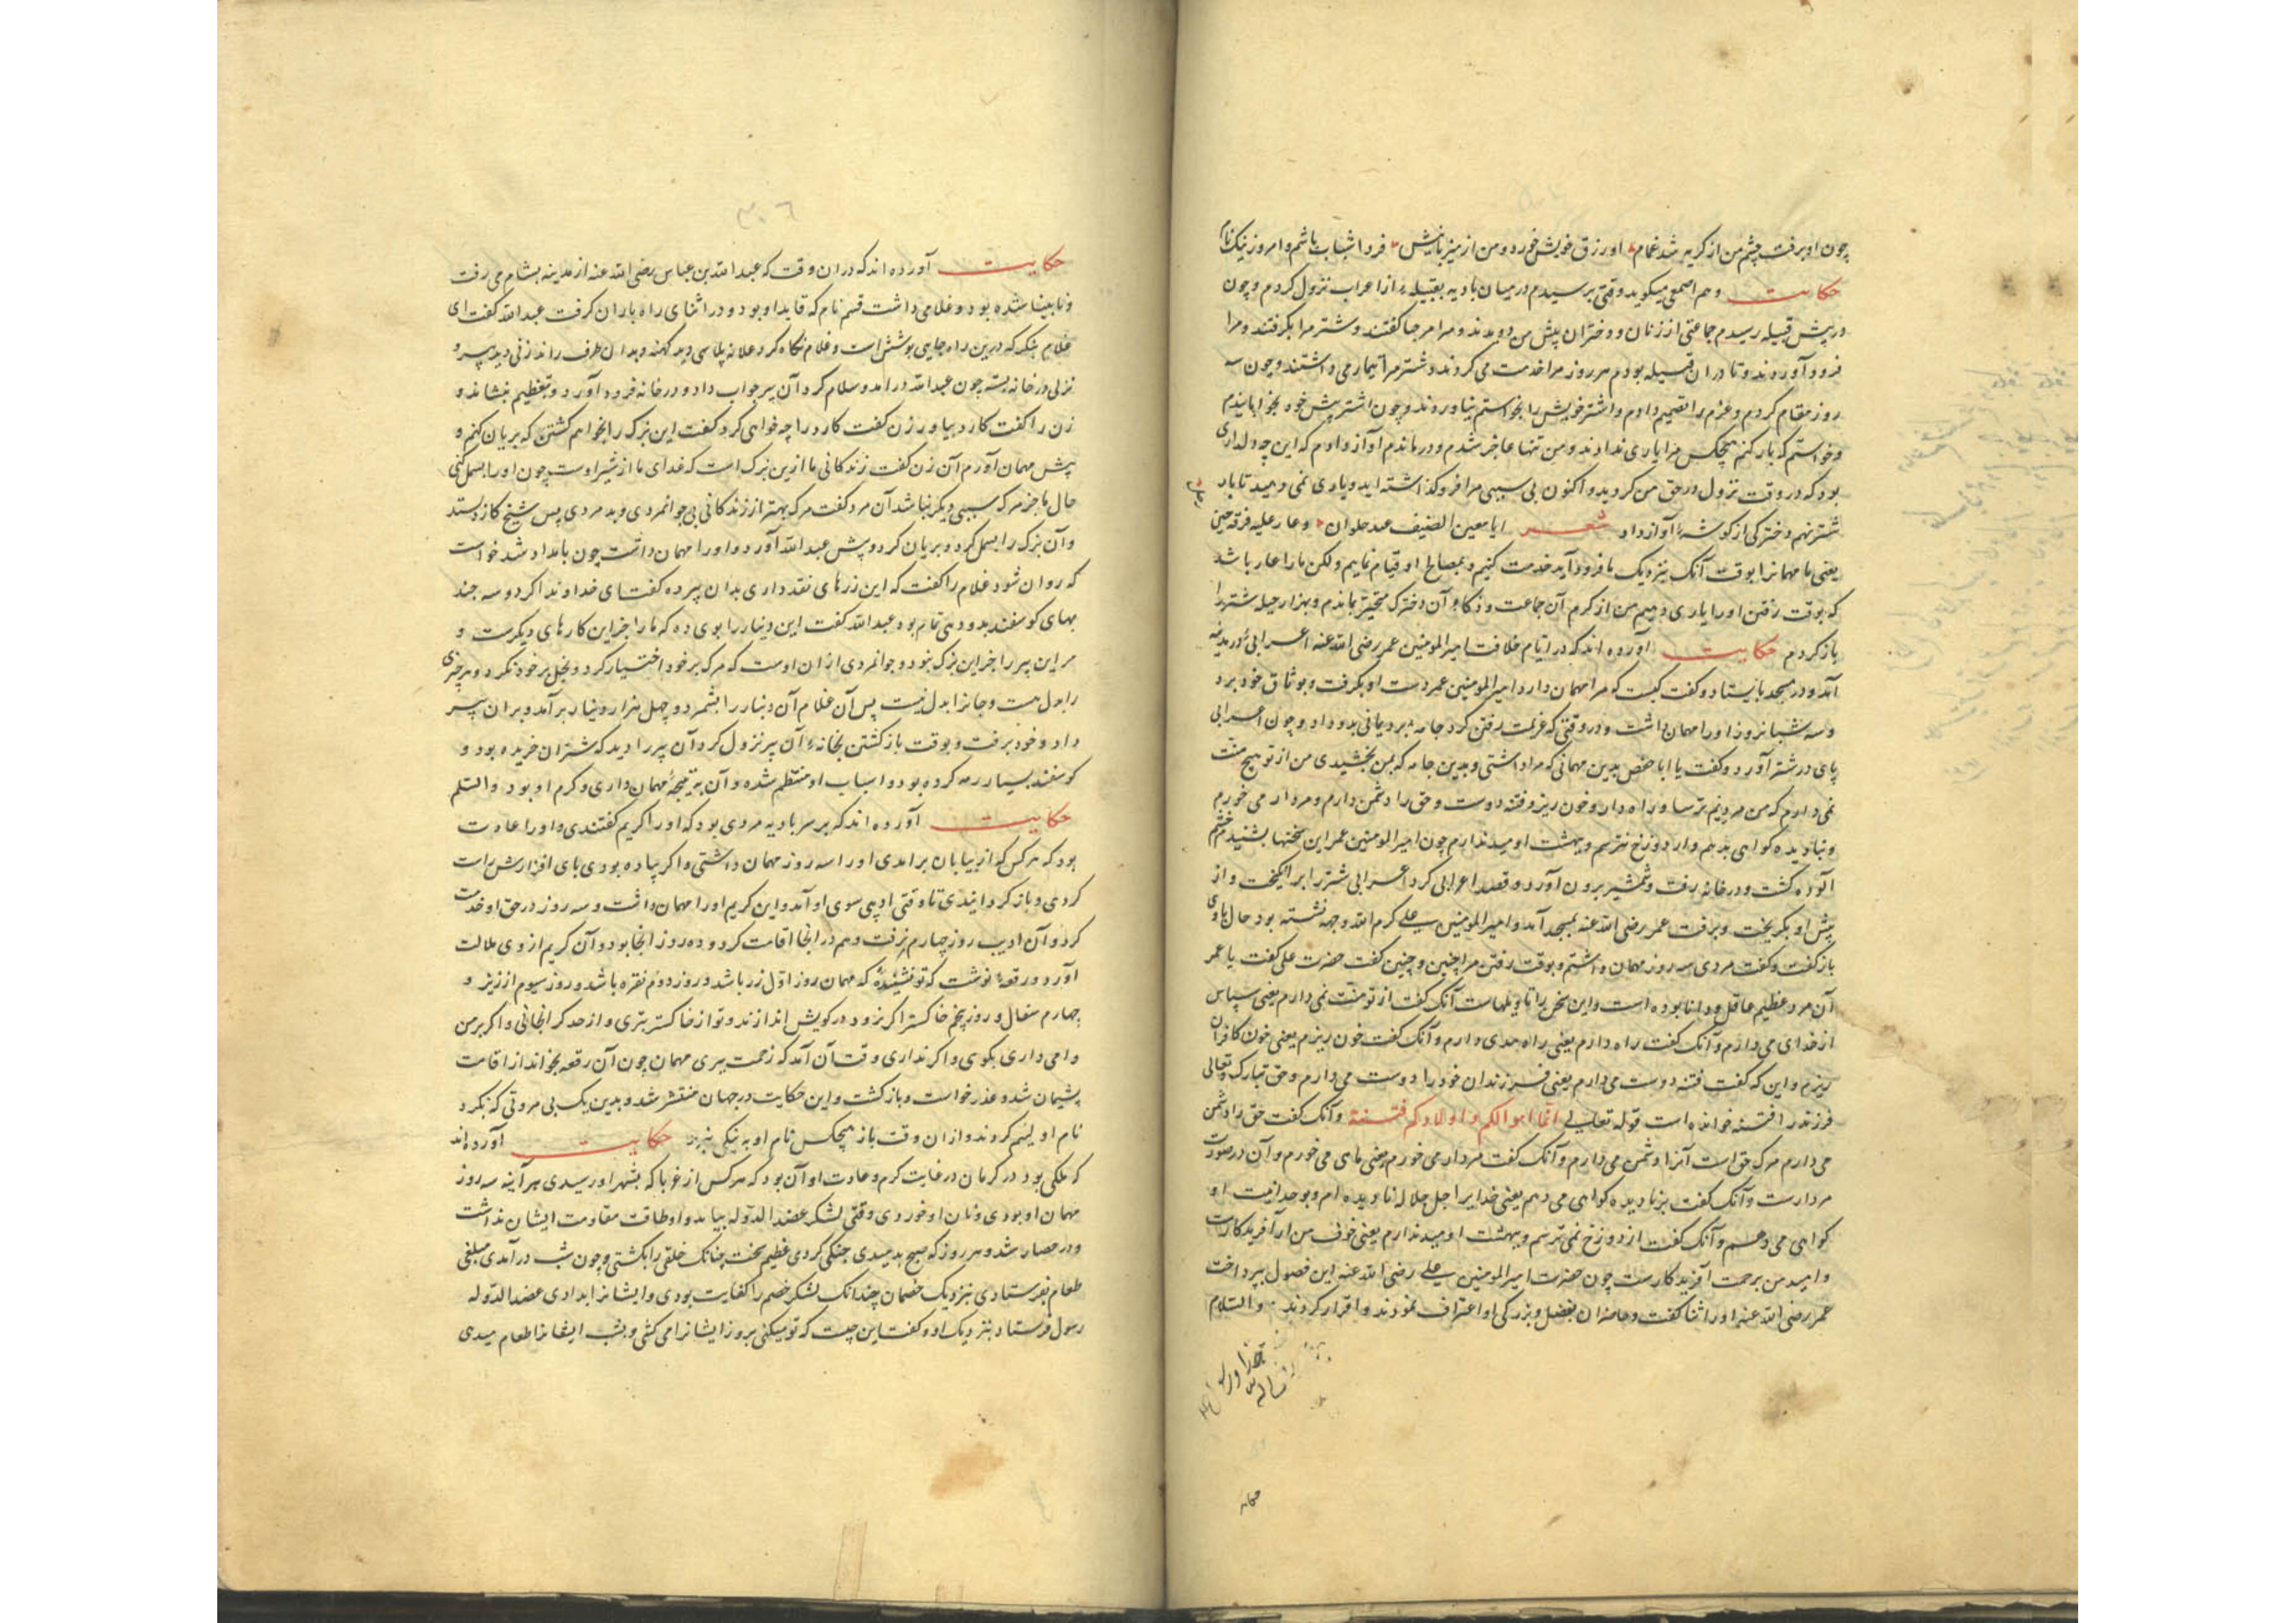 چون او برفت چشم من از کریه شد غمام او رزق خویش خورد و من از میزبانیش فردا شباب باشم و امروز نیک نام
حکایت وهم اصمعی میکوید وقتی برسیدم در میان بادیه بقبیلهٔ از اعراب نزول کردم و چون
در پیش قبیله رسیدم جماعتی از زنان و دختران پیش من دویدند و مرا مرحبا کفتند و شتر مرا بکرفتند و مرا
فرود آوردند و تا در ان قبیله بودم هر روز مرا خدمت می کردند و شتر مرا تیمار می داشتند و چون سه
روز مقام کردم و عزم را تصمیم دادم و اشتر خویش را بخواستم بیاوردند و چون اشتر پیش خود بخوابانیدم
و خواستم که بار کنم هیچکس مرا یاری ندادند و من تنها عاجز شدم و درماندم آواز دادم که این چه دلداری
بود که در وقت نزول در حق من کردید و اکنون بی سببی مرا فرو کذاشته اید و یاری نمی دهید تا بار
شتر نهم دخترکی از کوشهٔ آواز داد شعر ایا معین الضیف عند حلوان و عار علیه فرقه حین
یعنی ما مهمانرا بوقت آنک بنزدیک ما فرود آید خدمت کنیم و بمصالح او قیام نماییم ولکن ما را عار باشد
که بوقت رفتن او را یاری دهیم من از کرم آن جماعت و ذکاء آن دخترک متحیر بماندم و بهزار حیله شتر را
باز کردم حکایت آورده اند که در ایام خلافت امیر المومنین عمر رضی الله عنه اعرابی در مدینه
آمد و در مسجد بایستاد و کفت کیست که مرا مهمان دارد امیر المومنین عمر دست او بکرفت و بوثاق خود برد
و سه شبانروز او را مهمان داشت و در وقتی که عزیمت رفتن کرد جامه برد یمانی بدو داد و چون اعرابی
پای در شتر آورد و کفت یا ابا حفص بدین مهمانی که مرا داشتی و بدین جامه که بمن بخشیدی من از تو هیچ منت
نمی دارم که من مردیم ترسا و راه دار و خون ریز و فتنه دوست و حق را دشمن دارم و مردار می خورم
و نادیده کواهی بدهم و از دوزخ نترسم و ببهشت اومید ندارم چون امیر المومنین عمر این سخنها بشنید خشم
آلوده کشت و در خانه رفت و شمشیر برون آورد و قصد اعرابی کرد اعرابی شتر را برانکیخت و از
پیش او بکریخت و برفت عمر رضی الله عنه بمسجد آمد و امیر المومنین علی کرم الله وجهه نشسته بود حال با وی
باز کفت و کفت مردی سه روز مهمان داشتم و بوقت رفتن مرا چنین و چنین کفت حضرت علی کفت یا عمر
آن مرد عظیم عاقل و دانا بوده است و این سخن را تاویلهاست آنک کفت از تو منت نمی دارم یعنی سپاس
از خدای می دارم و آنک کفت راه دارم یعنی راه هدی دارم و آنک کفت خون ریزم یعنی خون کافران
ریزم و این که کفت فتنه دوست می دارم یعنی فرزندان خود را دوست می دارم و حق تبارک و تعالی
فرزند را فتنه خوانده است قوله تعالی انما اموالکم و اولادکم فتنة و آنک کفت حق را دشمن
می دارم مرک حق است آنرا دشمن می دارم و آنک کفت مردار می خورم یعنی ماهی می خورم و آن در صورت
مردارست و آنک کفت بر نادیده کواهی می دهم یعنی خدایرا جل جلاله نادیده ام و بوحدانیت او
کواهی می دهم و آنک کفت از دوزخ نمی ترسم و ببهشت اومید ندارم یعنی خوف من از آفریدکارست
و امید من برحمت آفریدکارست چون حضرت امیر المومنین علی رضی الله عنه این فصول بپرداخت
عمر رضی الله عنه او را ثنا کفت و حاضران بفضل و بزرکی او اعتراف نمودند و اقرار کردند والسلام
حکایت
٣٠٦
حکایت آورده اند که در ان وقت که عبد الله بن عباس رضی الله عنه از مدینه بشام می رفت
و نابینا شده بود و غلامی داشت قسم نام که قاید او بود و در اثنای راه باران کرفت عبد الله کفت ای
غلام بنکر که درین راه جایی پوششی است و غلام نکاه کرد علانه پلاسی دید کهنه و بدان طرف راند زنی دید پیر و
بزلی در خانه بسته چون عبد الله در امد و سلام کرد آن پیر جواب داد و در خانه فرود آورد و بتعظیم بنشاند و
زن را کفت کارد بیاور زن کفت کارد را چه خواهی کرد کفت این بزک را بخواهم کشتن که بریان کنم و
پیش مهمان آورم آن زن کفت زندکانی ما ازین بزک است که غدای ما از شیر اوست چون او را بسمل کنی
حال ما جز مرک سببی دیکر نباشد آن مرد کفت مرک بهتر از زندکانی بی جوانمردی و بد مردی پس شیخ کارد بستد
و آن بزک را بسمل کرد و بریان کرد و پیش عبد الله آورد و او را مهمان داشت چون بامداد شد خواست
که روان شود غلام را کفت که این زرهای نقد داری بدان پیر ده کفت ای خداوند اکر دو سه چند
بهای کوسفند بدو دهی تمام بود عبد الله کفت این دینار را بوی ده که ما را جز این کارهای دیکرست و
مر این پیر را جز این بزک نبود و جوانمردی از ان اوست که مرک بر خود اختیار کرد و بخل بر خود نکرد و هر چیزی
را بدل هست و جانرا بدل نیست پس آن غلام آن دینار را بشمرد و چهل هزار دینار بر آمد و بران پیر
داد و خود برفت و بوقت باز کشتن بخانهٔ آن پیر نزول کرد آن پیر را دید که شتران خریده بود و
کوسفند بسیار رمه کرده بود و اسباب او منتظم شده و آن نتیجهٔ مهمان داری و کرم او بود والسلم
حکایت آورده اند که بر سر بادیه مردی بود که او را کریم کفتندی و او را عادت
بود که هر کس که از بیابان برامدی او را سه روز مهمان داشتی و اکر پیاده بودی پای افزارش راست
کردی و باز کردانیدی تا وقتی ادیبی سوی او آمد و این کریم او را مهمان داشت و سه روز در حق او خدمت
کرد و آن ادیب روز چهارم نرفت و هم در انجا اقامت کرد و ده روز انجا بود و آن کریم از وی ملالت
آورد و رقعهٔ نوشت که تو نشنیدهٔ که مهمان روز اول زر باشد و روز دوم نقره باشد و روز سیوم ارزیز و
چهارم سفال و روز پنجم خاکستر اکر نرود در کویش اندازند و تو از خاکستر بتری و از حد کرانجانی و اکر بر من
وامی داری بکوی و اکر نداری وقت آن آمد که زحمت ببری مهمان چون آن رقعه بخواند از اقامت
پشیمان شد و عذر خواست و باز کشت و این حکایت در جهان منتشر شد و بدین یک بی مروتی که بکرد
نام او لئیم کردند و از ان وقت باز هیچکس نام او به نیکی نبرد حکایت آورده اند
که ملکی بود در کرمان در غایت کرم و عادت او آن بود که هر کس از غربا که بشهر او رسیدی هر آینه سه روز
مهمان او بودی و نان او خوردی وقتی لشکر عضد الدوله بیامد و او طاقت مقاومت ایشان نداشت
و در حصار شد و هر روز که صبح بدمیدی جنکی کردی عظیم سخت چنانک خلقی را بکشتی و چون شب در آمدی مبلغی
طعام بفرستادی بنزدیک خصمان چندانک لشکر خصم را کفایت بودی و ایشانرا بدادی عضد الدوله
رسول فرستاد بنزدیک او و کفت این چیست که تو میکنی بروز ایشانرا می کشی و بشب ایشانرا طعام میدی